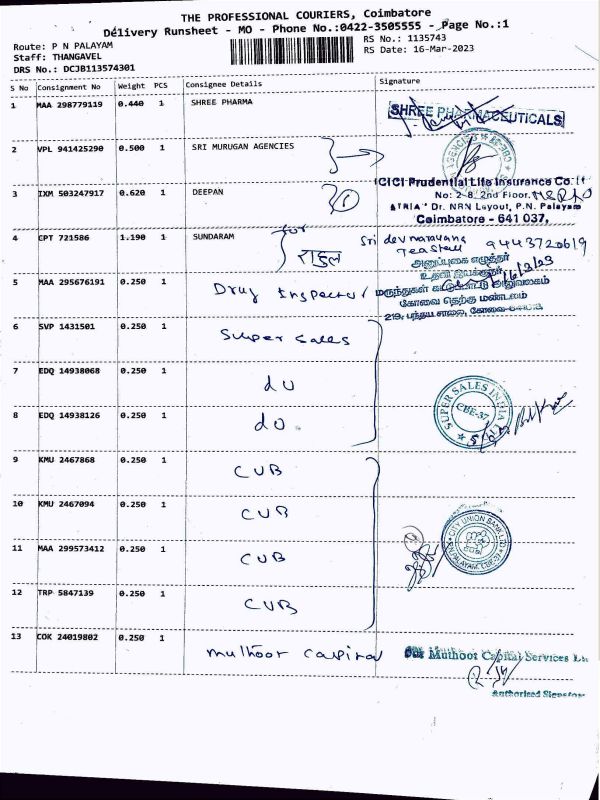 THE PROFESSIONAL COURIERS, Coimbatore
Delivery Runsheet - MO - Phone No.:0422-3505555 - Page No.:1
Route: P N PALAYAM
RS No.: 1135743
Staff: THANGAVEL
RS Date: 16-Mar-2023
DRS No.: DCJB113574301
S No Consignment No Weight PCS Consignee Details Signature
1 MAA 298779119 0.440 1 SHREE PHARMA
SHREE PHARMACEUTICALS
2 VPL 941425290 0.500 1 SRI MURUGAN AGENCIES
3 IXM 503247917 0.620 1 DEEPAN
ICICI Prudential Life Insurance Co. Lt
No: 2-8, 2nd Floor,
"ATRIA" Dr. NRN Layout, P.N. Palayam
Coimbatore - 641 037,
4 CPT 721586 1.190 1 SUNDARAM
for
राहुल
Sri devnarayana
Tea Stall
9443720619
5 MAA 295676191 0.250 1 Drug Inspector
அனுப்புகை எழுத்தர்
உதவி இயக்குநர்
மருந்துகள் கட்டுப்பாட்டு அலுவலகம்
கோவை தெற்கு மண்டலம்
219, பந்தய சாலை, கோவை-641018
6 SVP 1431501 0.250 1 Super Sales
7 EDQ 14938068 0.250 1 do
8 EDQ 14938126 0.250 1 do
SUPER SALES INDIA LTD
CBE-37
9 KMU 2467868 0.250 1 CUB
10 KMU 2467094 0.250 1 CUB
11 MAA 299573412 0.250 1 CUB
CITY UNION BANK LTD
P.N.PALAYAM, CBE-37
12 TRP 5847139 0.250 1 CUB
13 COK 24019802 0.250 1 Muthoot Capital
Muthoot Capital Services Lt
Authorised Signator